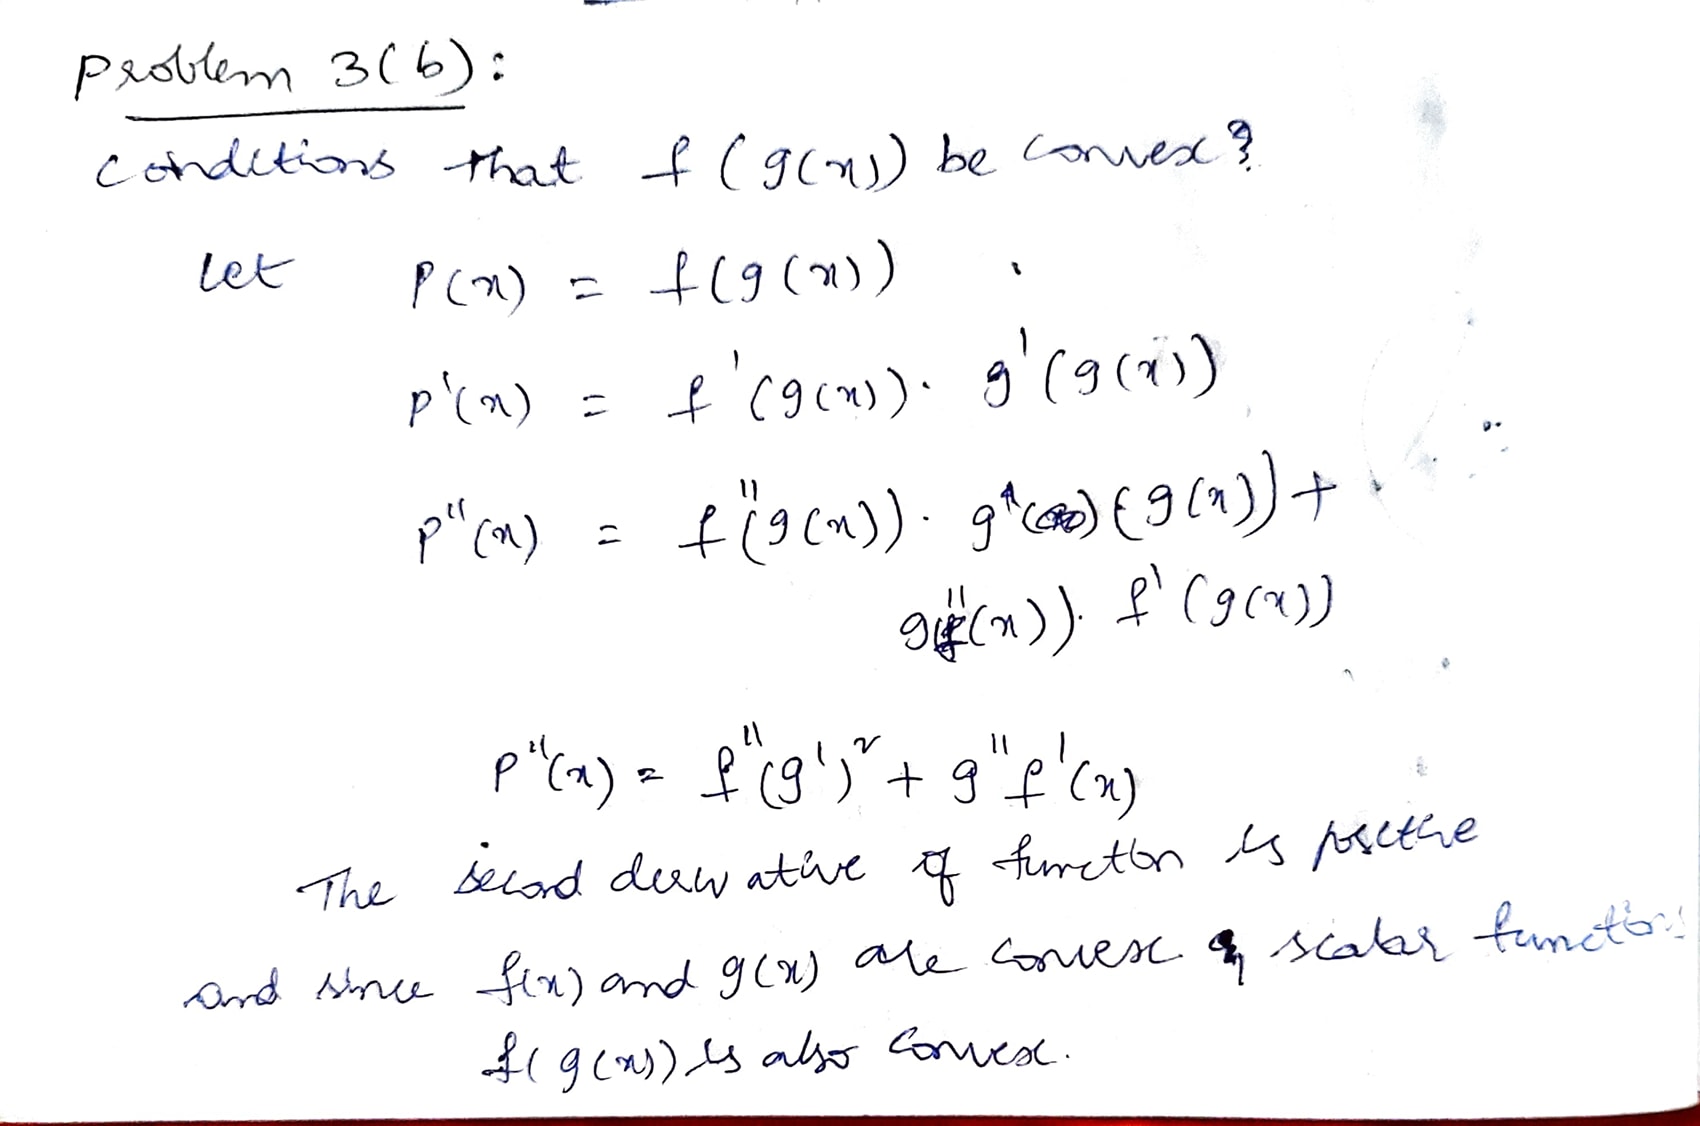 Problem 3(b):
Conditions that f(g(x)) be convex?
Let P(x) = f(g(x))
P'(x) = f'(g(x)). g'(g(x))
P''(x) = f''(g(x)). g' (g(x)) +
g''(x)). f'(g(x))
P''(x) = f''(g')² + g''f'(x)
The second derivative of function is positive
and since f(x) and g(x) are convex & scalar functions
f(g(x)) is also convex.